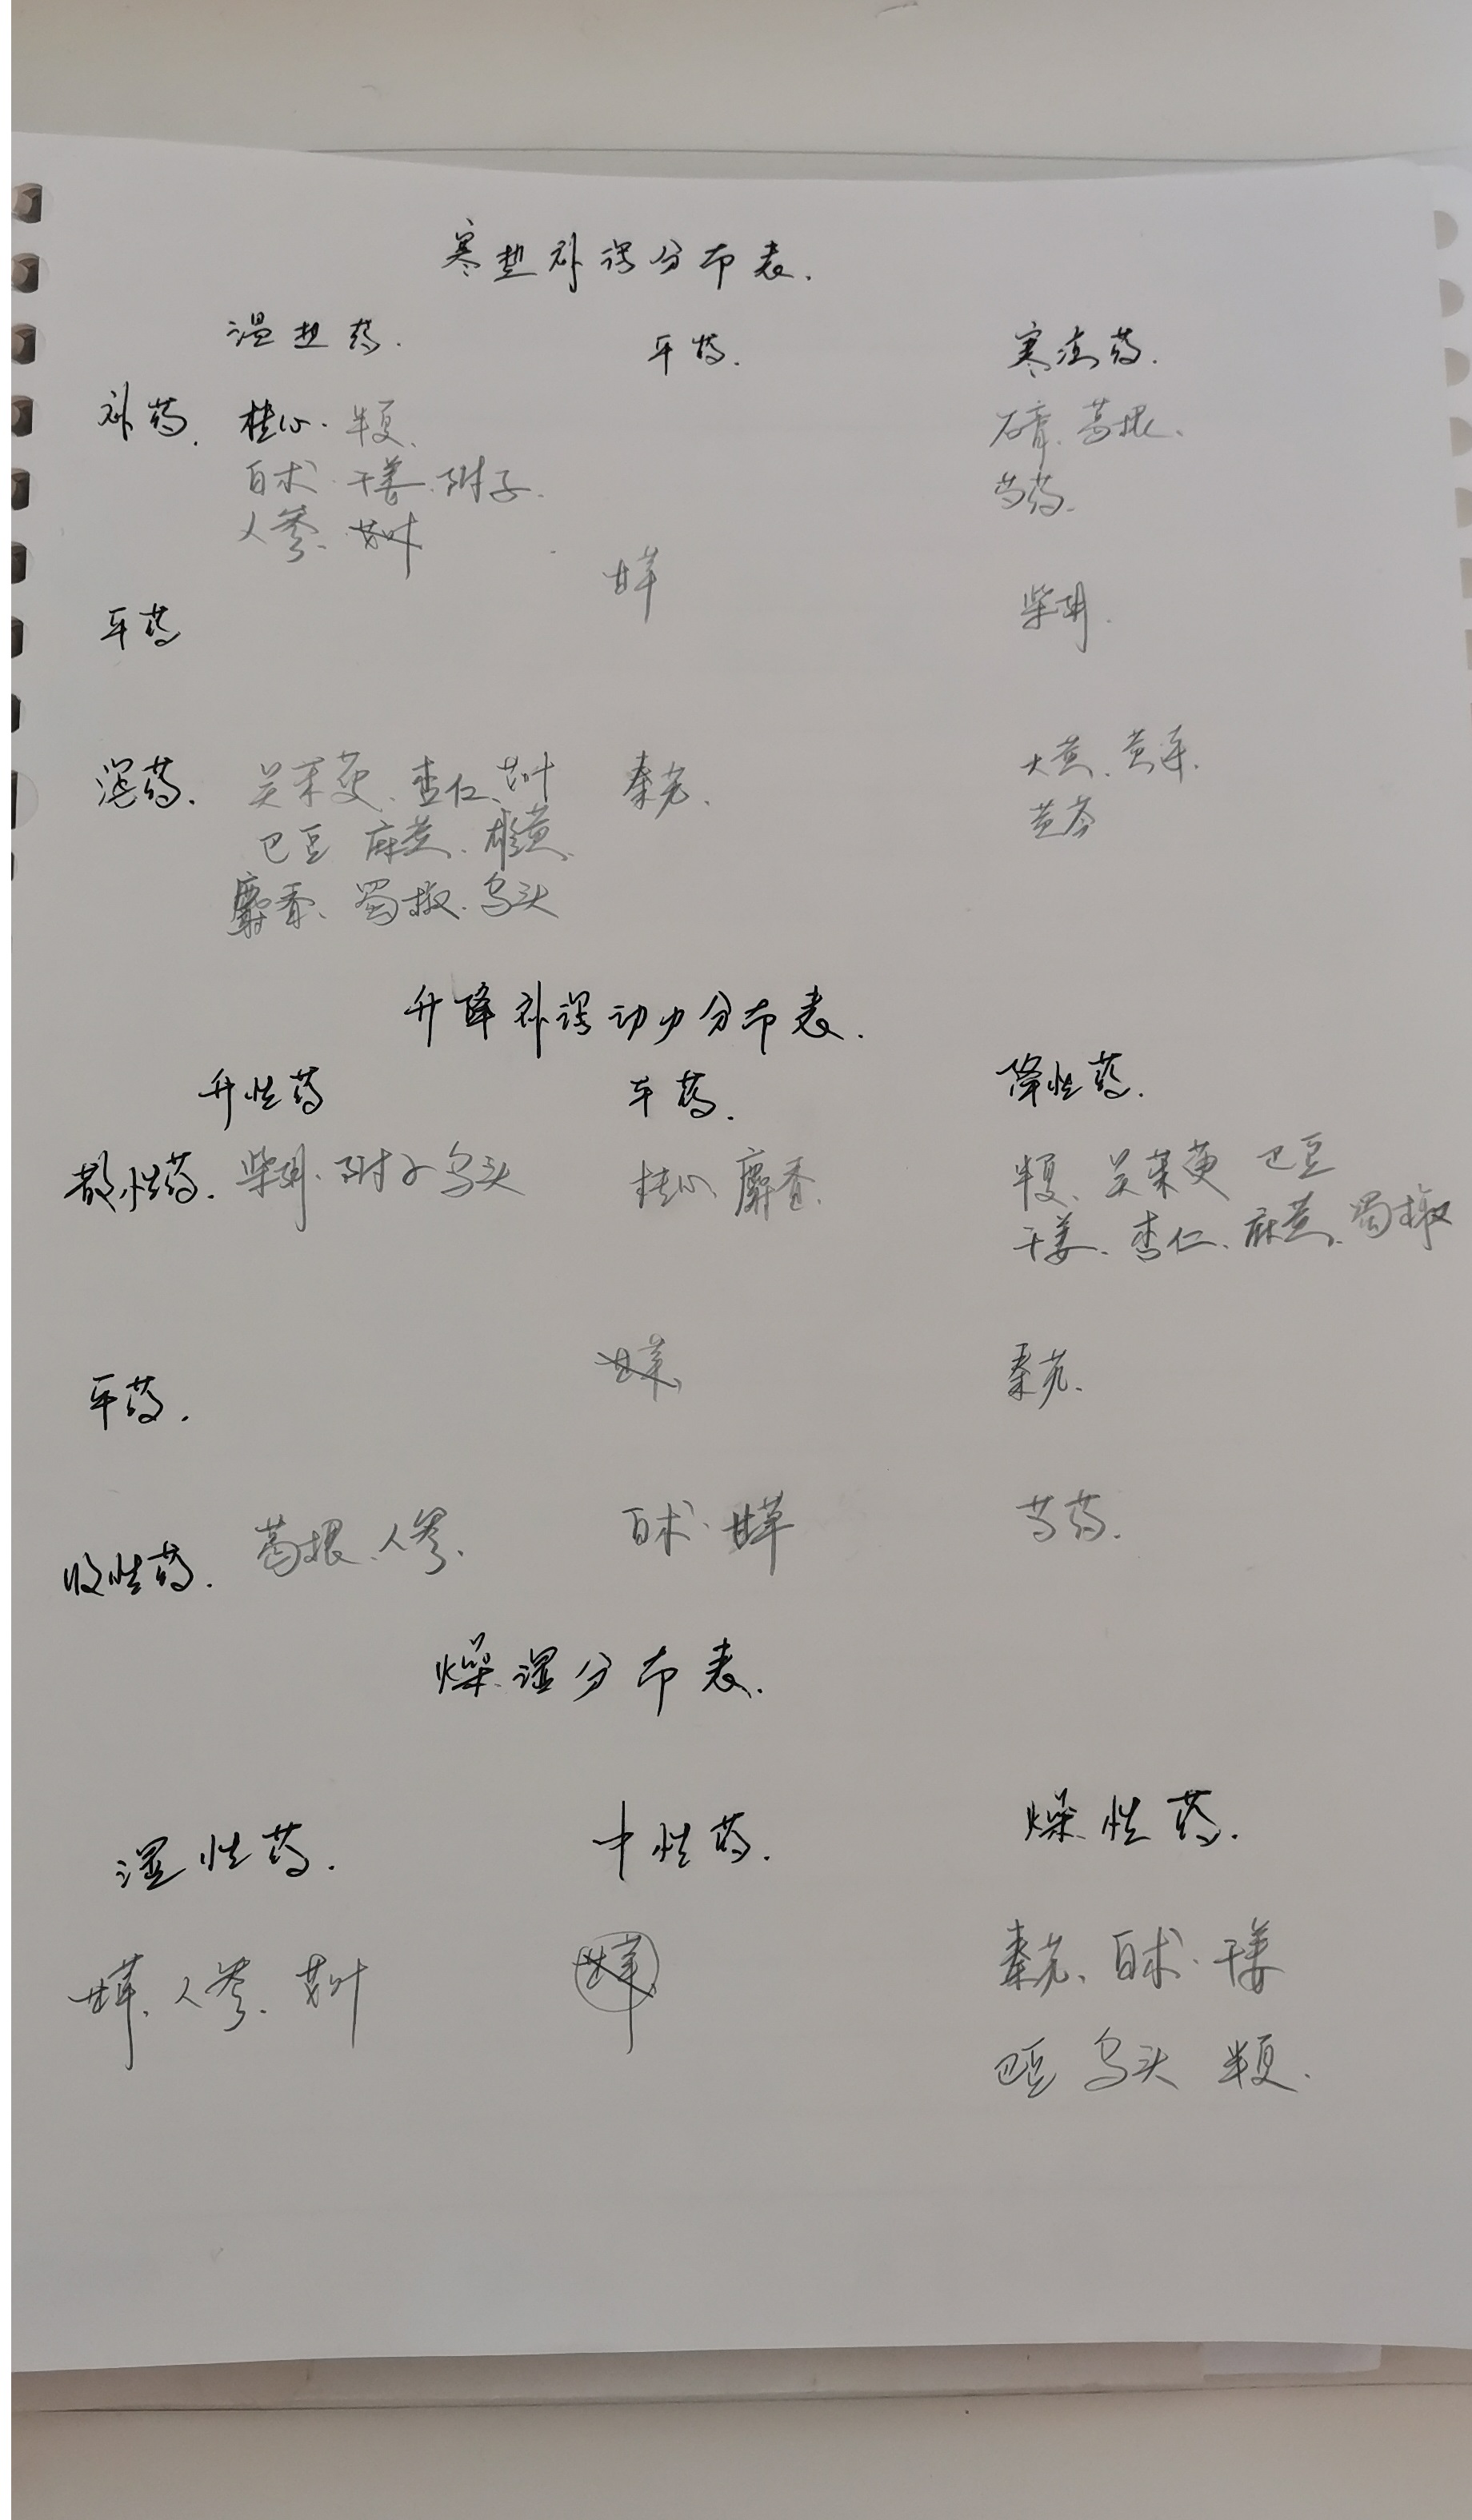 寒热补泻分布表.
温热药. 平药. 寒凉药.
补药. 桂心. 半夏、 石膏、葛根、
白术、干姜、附子. 芍药.
人参、
甘草
平药 柴胡.
泻药. 吴茱萸、杏仁、艾叶 秦艽. 大黄、黄连.
巴豆 麻黄、雄黄、 黄芩
麝香、蜀椒、乌头
升降补泻动力分布表.
升性药 平药. 降性药.
散性药. 柴胡、附子乌头 桂心、麝香. 半夏、吴茱萸 巴豆
干姜、杏仁、麻黄、蜀椒
甘草、 秦艽.
平药.
收性药. 葛根、人参. 白术、甘草 芍药.
燥湿分布表.
湿性药. 中性药. 燥性药.
甘草、人参、艾叶 甘草 秦艽、白术、干姜
巴豆 乌头 半夏.